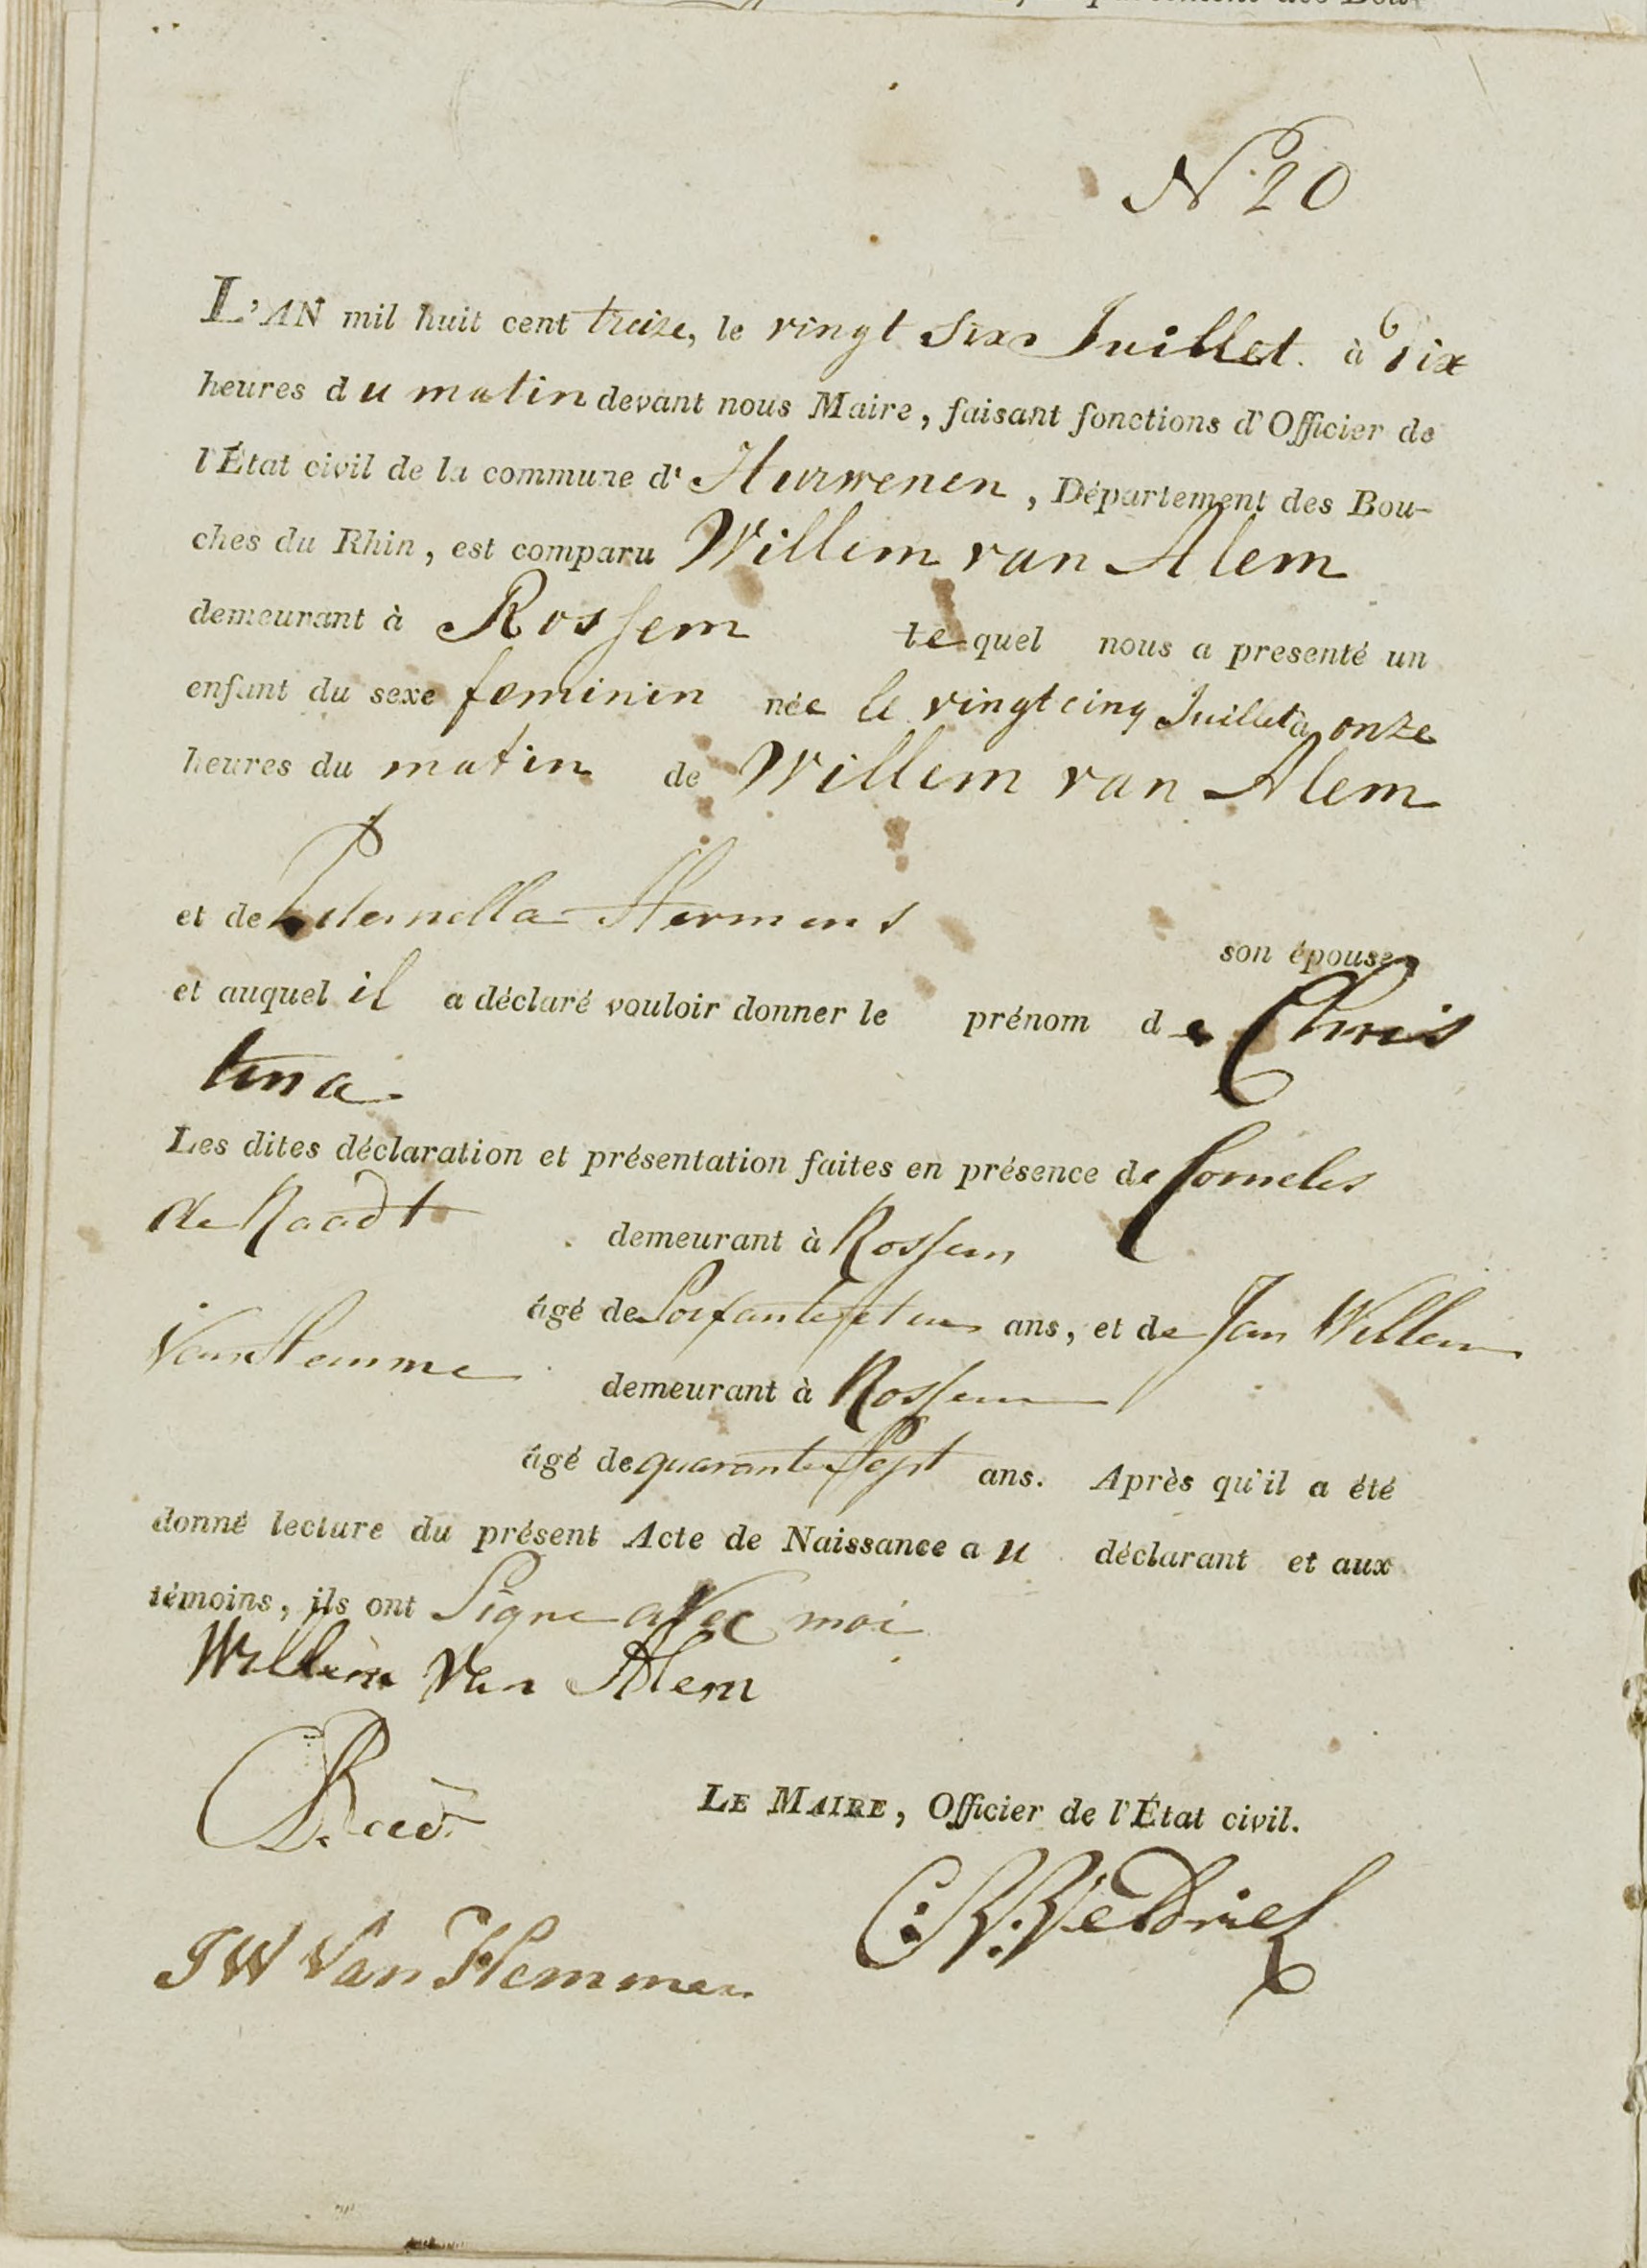 N.º 20
L'AN mil huit cent treize, le vingt Six Juillet. à Dix
heures du matin devant nous Maire, faisant fonctions d'Officier de
l'État civil de la commune d' Hurwenen, Département des Bou-
ches du Rhin, est comparu Willem van Alem
demeurant à Rossem lequel nous a presenté un
enfant du sexe feminin née le vingt cinq Juillet à onze
heures du matin de Willem van Alem
et de Peternella Hermens
son épouse
et auquel il a déclaré vouloir donner le prénom de Chris
tina
Les dites déclaration et présentation faites en présence de Cornelis
de Raadt demeurant à Rossem
âgé de Soixante et un ans, et de Jan Willem
Van Hemme demeurant à Rossem
âgé de quarante Sept ans. Après qu'il a été
donné lecture du présent Acte de Naissance au déclarant et aux
témoins, ils ont Signe avec moi
Willem Van Alem
LE MAIRE, Officier de l'État civil.
JW Van Hemmen